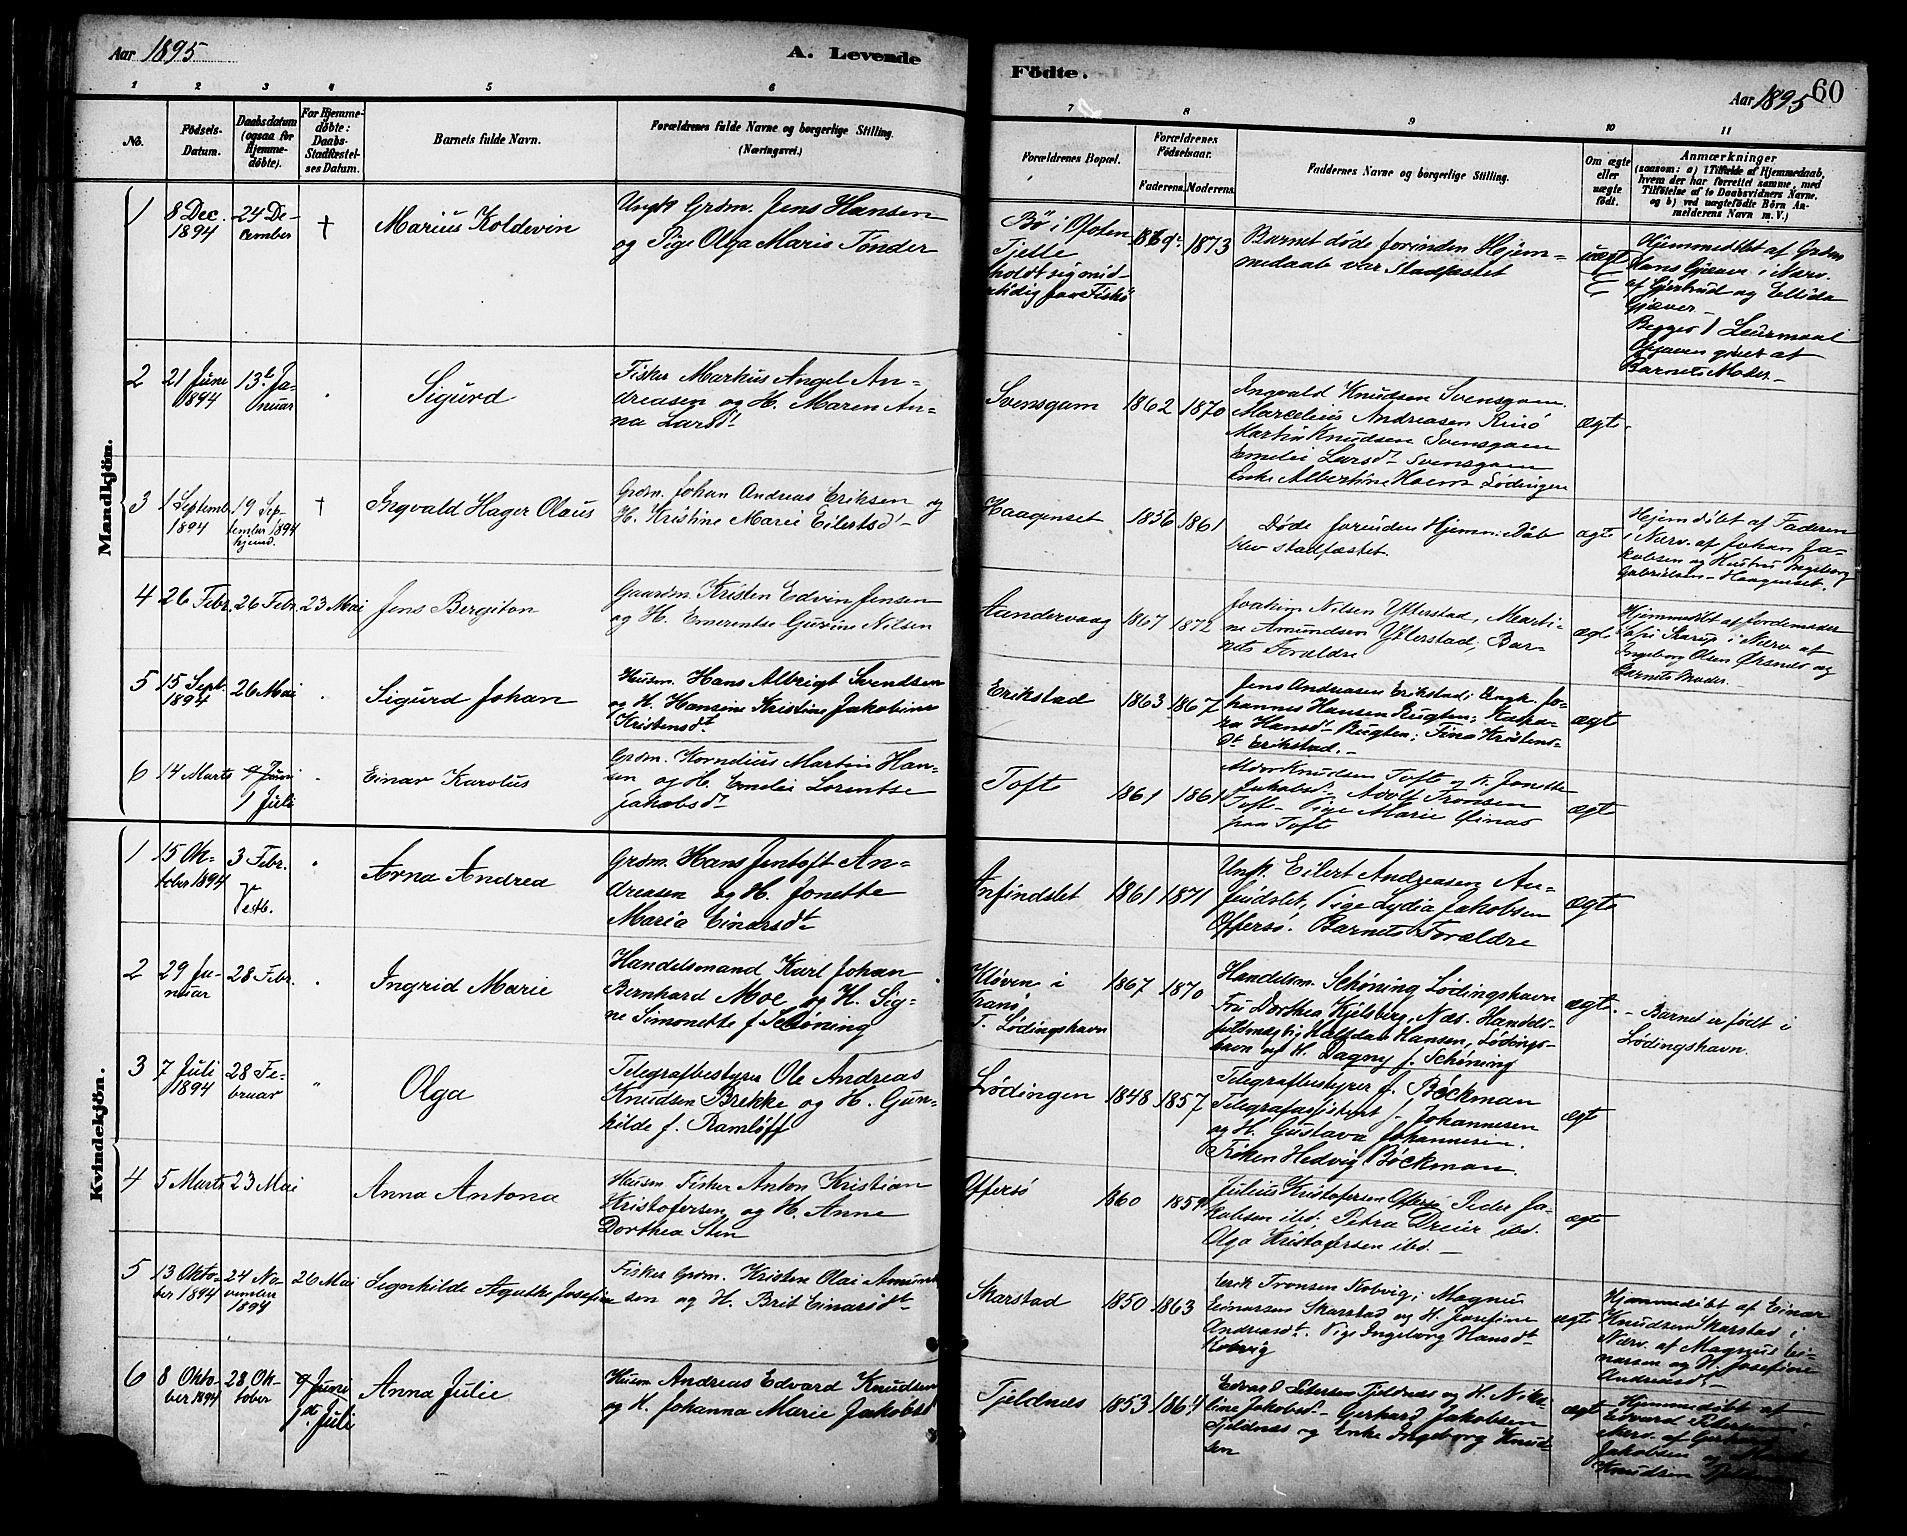 Aar 1895
A. Levende
Födte.
Aar 1895
60
1 2 3 4 5 6
7 8 9 10 11
No.
Födsels-
Datum.
Daabsdatum
(ogsaa for
Hjemme-
döbte).
For Hjemme-
döbte:
Daabs-
Stadfæstel-
ses Datum.
Barnets fulde Navn.
Forældrenes fulde Navne og borgerlige Stilling.
(Næringsvei.)
Forældrenes Bopæl.
Forældrenes
Födselsaar.
Faderens. Moderens.
Faddernes Navne og borgerlige Stilling.
Om ægte
eller
uægte
födt.
Anmærkninger
(saasom: a) i Tilfælde af Hjemmedaab,
hvem der har forrettet samme, med
Tilföielse af to Daabsvidners Navne.
og b) ved uægtefödte Börn An-
melderens Navn m. V.)
Mandkjön.
1
8 Dec.
1894
24 De-
cember
†
Marius Koldevin
Ungk Grdm. Jens Hansen
og Pige Olga Maris Tönder
Bø i Ofoten
Tjelle
holdt sig mid-
1869
1873
Barnet døde forinden Hjem-
medaab var Stadfæstet
uægt
Hjemmedøbt af Grdm
Hans Gjæver i Nærv.
af Gjertrud og Ellida
Gjæver
Begges 1 Leiermaal
Opgaven givet af
Barnets Moder.
2
21 Juni
1894
13de Ja-
nuar
Sigurd
Fisker Markus Angel An-
dreasen og H. Maren An-
na Larsdt
Svensgam
1862
1870
Ingvald Knudsen Svensgam.
Marcelius Andreasen Rinö
Martin Knudsen Svensgam
Emelie Larsdt Svensgam
Enke Albertine Lödingen
ægte.
3
1 Septemb.
1894
19 Sep-
tember 1894
hjemd.
†
Ingvald Hager Olaus
Grdm. Johan Andreas Eriksen og
H. Kristine Marie Eilertsdt
Haagenset
1856
1861
Døde forinden Hjem: Daab
blev stadfæstet.
ægte
Hjemdöbt af Faderen
i Nærv. af Johan Ja-
kobsen og Hustru Ingeborg
Gabrielsen Haagenset.
4
26 Febr.
26 Febr.
23 Mai
Jens Bergiton
Gaardm. Kristen Edvin Jensen
og H. Emerentse Gurine Nilsen
Sandervaag
1867
1872
Joakim Nilsen Ytterstad, Marti-
ne Amundsen Ytterstad, Bar-
nets Forældre
ægte
Hjemmedøbt af Jordemoder
i Nærv af
Ingeborg Olsen og
Barnets Moder.
5
15 Sept.
1894
26 Mai
Sigurd Johan
Husm. Hans Albrigt Svendsen
og H. Hansine Kristine Jakobine
Kristensdt
Erikstad
1863
1867
Jens Andreasen Erikstad; Ungk. Jo-
hannes Hansen Rugten; Kata-
ra Hansdt Rugten; Fina Kristens-
dt Erikstad.
ægte
6
14 Marts
9 Juni
1 Juli
Einar Karolus
Grdm. Kornelius Martin Han-
sen og H. Emelie Lorentse
Jakobsdt
Tofte
1861
1861
Knudsen Tofte og H. Jonette
Jakobsdt Adolf Tronsen
Tofte Pige Marie
paa Tofte
ægte
Kvindekjön.
1
15 Ok-
tober 1894
3 Febr.
Vestb.
Arna Andrea
Grdm. Hans Jentoft An-
dreasen og H. Jonette
Maria Einarsdt
Anfindslet
1861
1871
Ungk. Eilert Andreasen An-
findslet, Pige Lydia Jakobsen
Offersö. Barnets Forældre
ægte
2
29 Ja-
nuar
28 Febr.
Ingrid Marie
Handelsmand Karl Johan
Bernhard Moe og H. Sig-
ne Simonette f Schöning
Kløven i
Tranö
T. Lödingshavn
1867
1870
Handelsm. Schöning Lödingshavn
Fru Dorthea Kjelsberg, Næs. Handels-
Halfdan Hansen, Lödings-
havn og H. Dagny f. Schöning
ægte.
Barnet er født i
Lödingshavn.
3
7 Juli
1894
28 Fe-
bruar
"
Olga
Telegrafbestyrer Ole Andreas
Knudsen Brekke og H. Gun-
hilde f. Ramløff
Lödingen
1848
1857
Telegrafbestyrer J. Böckman
Telegrafassistent Johannesen
og H. Gustava Johannesen.
Frøken Hedvig Böckman.
ægt
4
5 Marts
23 Mai
Anna Antona
Husm Fisker Anton Kristian
Kristofersen og H. Anne
Dorthea Sten
Offersö
1860
1859
Julius Kristofersen Offersö Peder Ja-
kobsen ibd. Petra Dreier ibd.
Olga Kristofersen ibd.
ægte
5
13 Okto-
ber 1894
24 No-
vember
1894
26 Mai
Segnhilde Agathe Josefine
Fisker Grdm. Kristen Olai Amund-
sen og H. Brit Einarsdt
Skarstad
1850
1863
Erik Tronsen Kobvig; Magnus
Einarsen Skarstad og H. Josefine
Andreasdt. Pige Ingeborg Hansdt
Kobvig
ægte
Hjemmedöbt af Einar
Knudsen Skarstad i
Nærv. af Magnus Ei-
narsen og H. Josefine
Andreasdt
6
8 Okto-
ber 1894
28 Ok-
tober
9 Juni
1ste Juli
Anna Julie
Husm Andreas Edvard Knudsen
og H. Johanna Marie Jakobsd
Tjeldnæs
1853
1864
Edvard Petersen Tjeldnæs og H. Niko-
line Jakobsdt Gerhard Jakobsen
Tjeldnæs og Enke Ingeborg Knud-
sen
ægt
Hjemmedöbt af
Edvard Petersen i
Nærv. af Gerhard
Jakobsen og
Knudsen Tjeldnæs